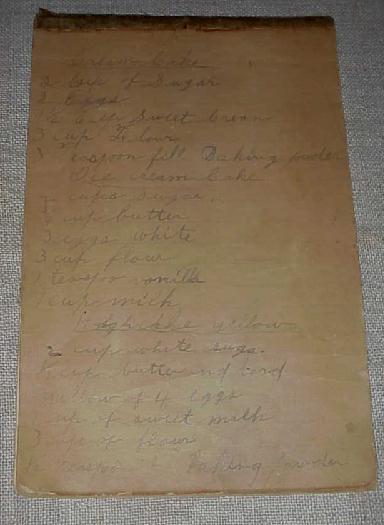 Cream Cake
2 Cup of Sugar
2 Eggs
1/2 Cup Sweet Cream
3 cup Flour
3 teaspoon full Baking powder
Ice cream Cake
cups Sugar,
cup butter
3 eggs white
3 cup flour
1 teaspoo vanilla
1 cup milk
yellow
2 cup white suga.
cup butter and lard
yellow of 4 eggs
cup of sweet milk
3 cups of flour
teaspoo Baking Powder